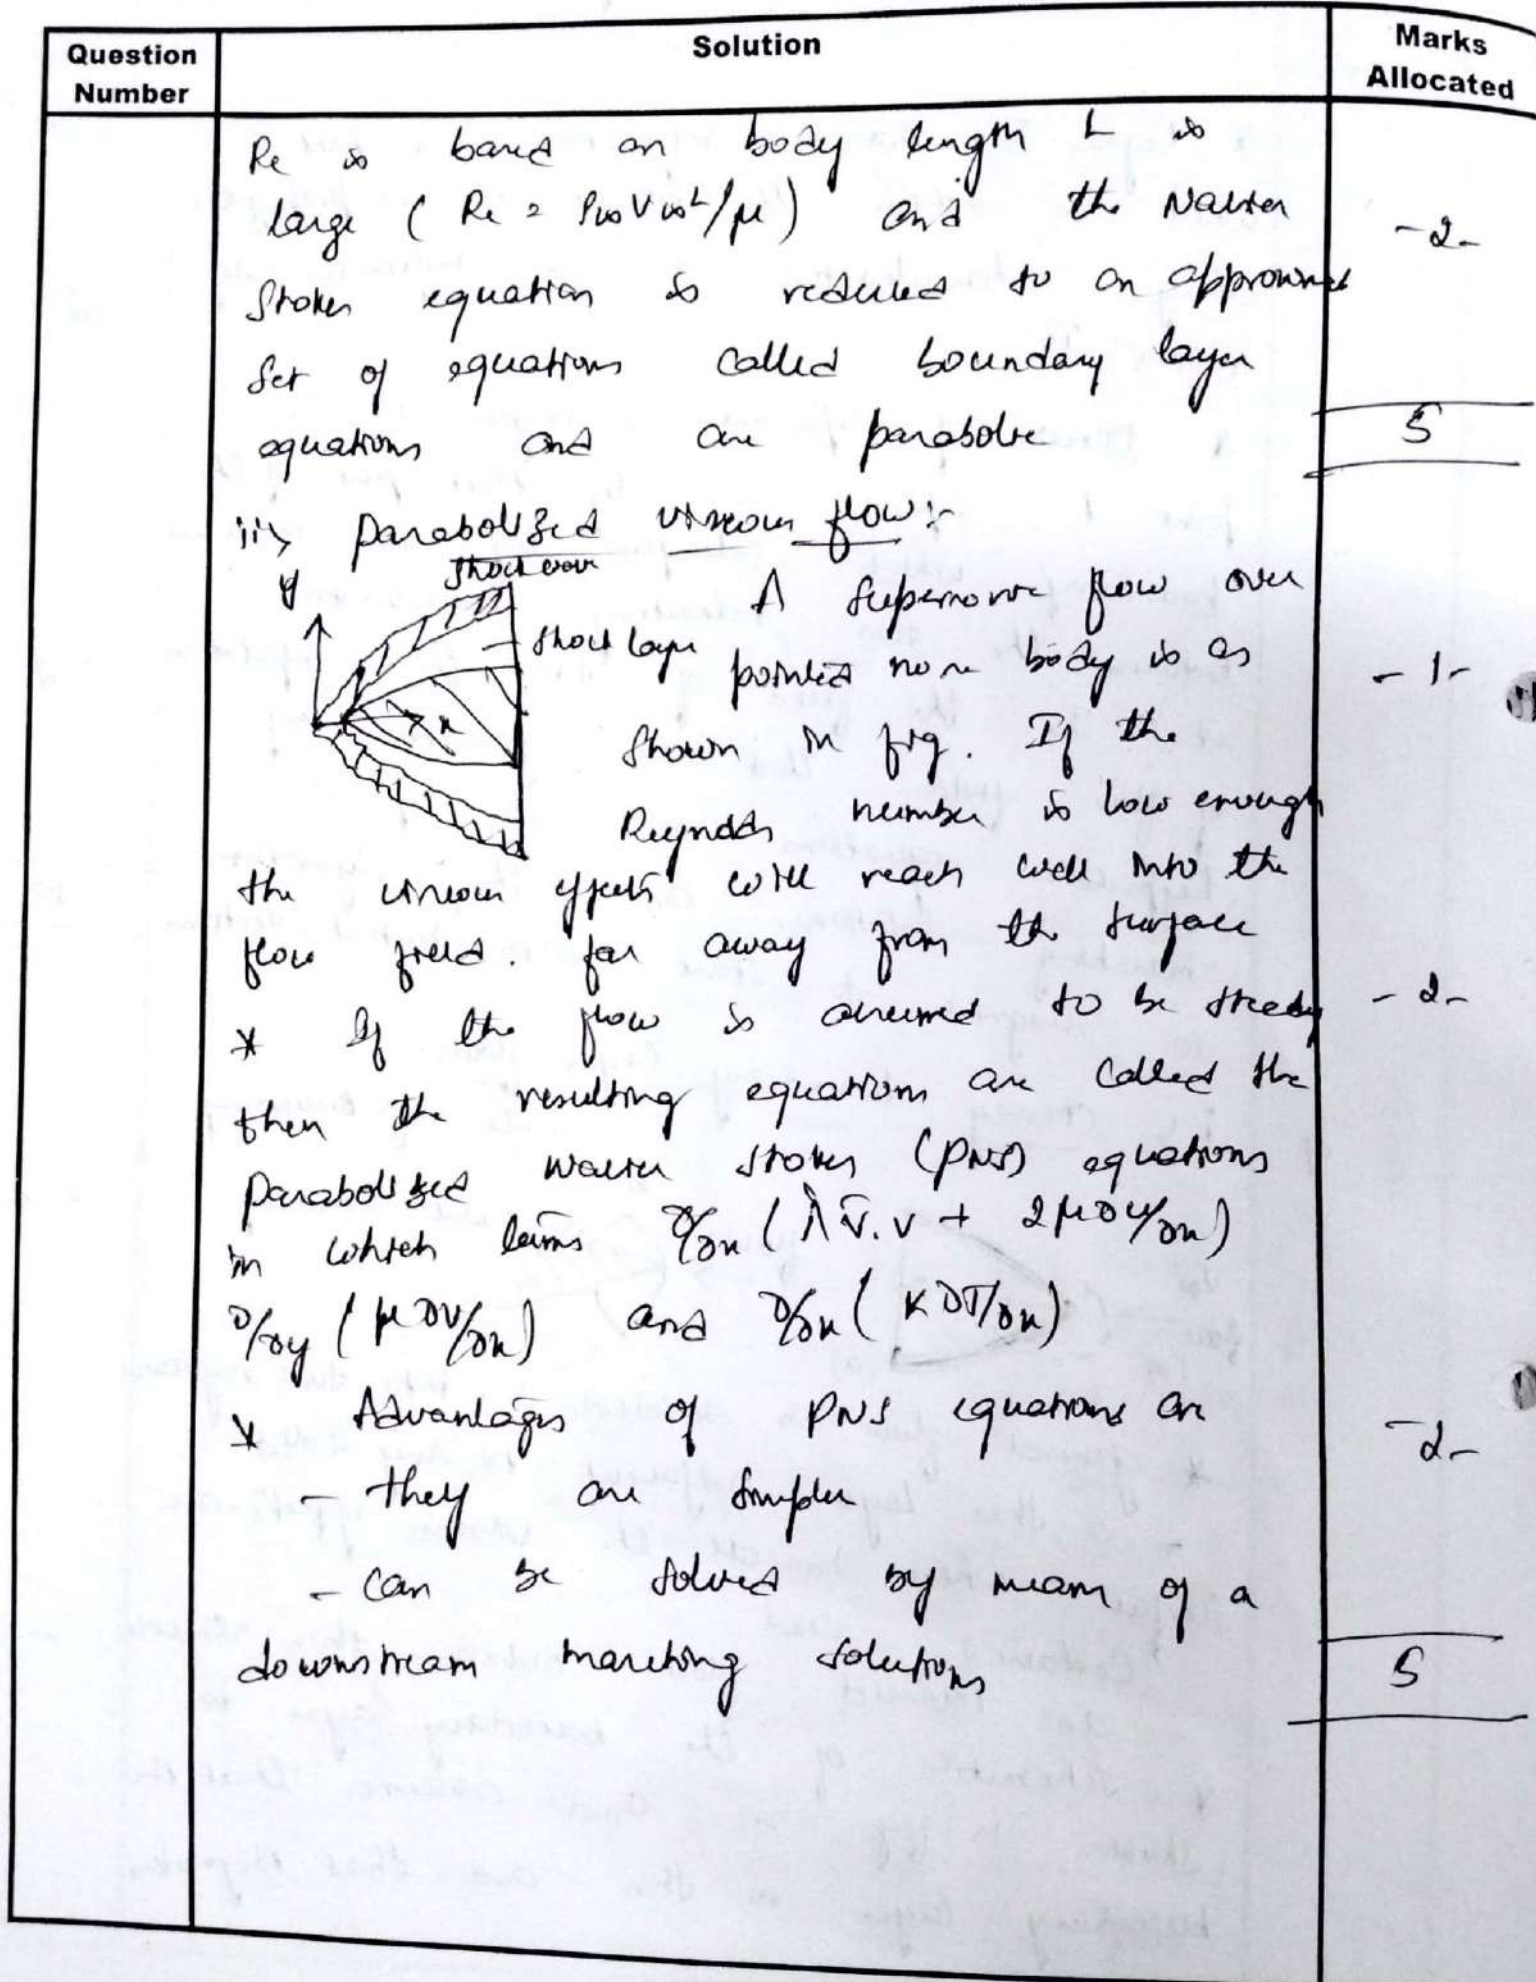 Question Number
Solution
Marks Allocated
Re is based on body length L is
large ( Re = ρ∞V∞L/μ ) and the Navier
- 2 -
Stokes equation is reduced to an approximate
set of equations called boundary layer
equations and are parabolic
5
ii> Parabolized viscous flow :-
y
Shock wave
Shock layer
x
A supersonic flow over
pointed nose body is as
- 1 -
shown in fig. If the
Reynolds number is low enough
the viscous effects will reach well into the
flow field. far away from the surface
* If the flow is assumed to be steady
- 2 -
then the resulting equations are called the
parabolized Navier Stokes (PNS) equations
in which terms ∂/∂x ( λ ∇.V + 2μ ∂u/∂x )
∂/∂y ( μ ∂V/∂x ) and ∂/∂x ( K ∂T/∂x )
* Advantages of PNS equations are
- 2 -
- they are simpler
- can be solved by means of a
downstream marching solutions
5